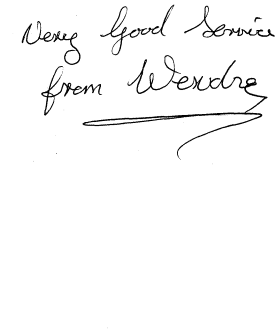 Very Good Service
from Wendre